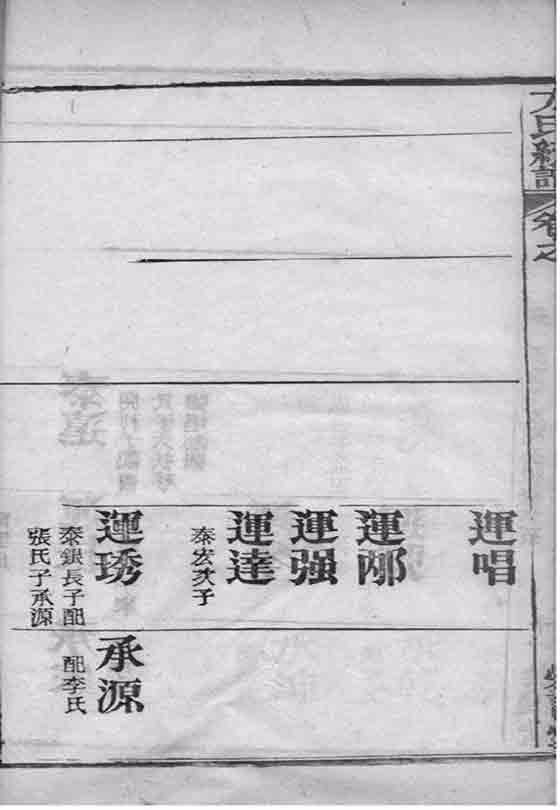 運唱
運邴
運强
運達
泰宏次子
運琇
泰銀長子配
張氏子承源
承源
配李氏